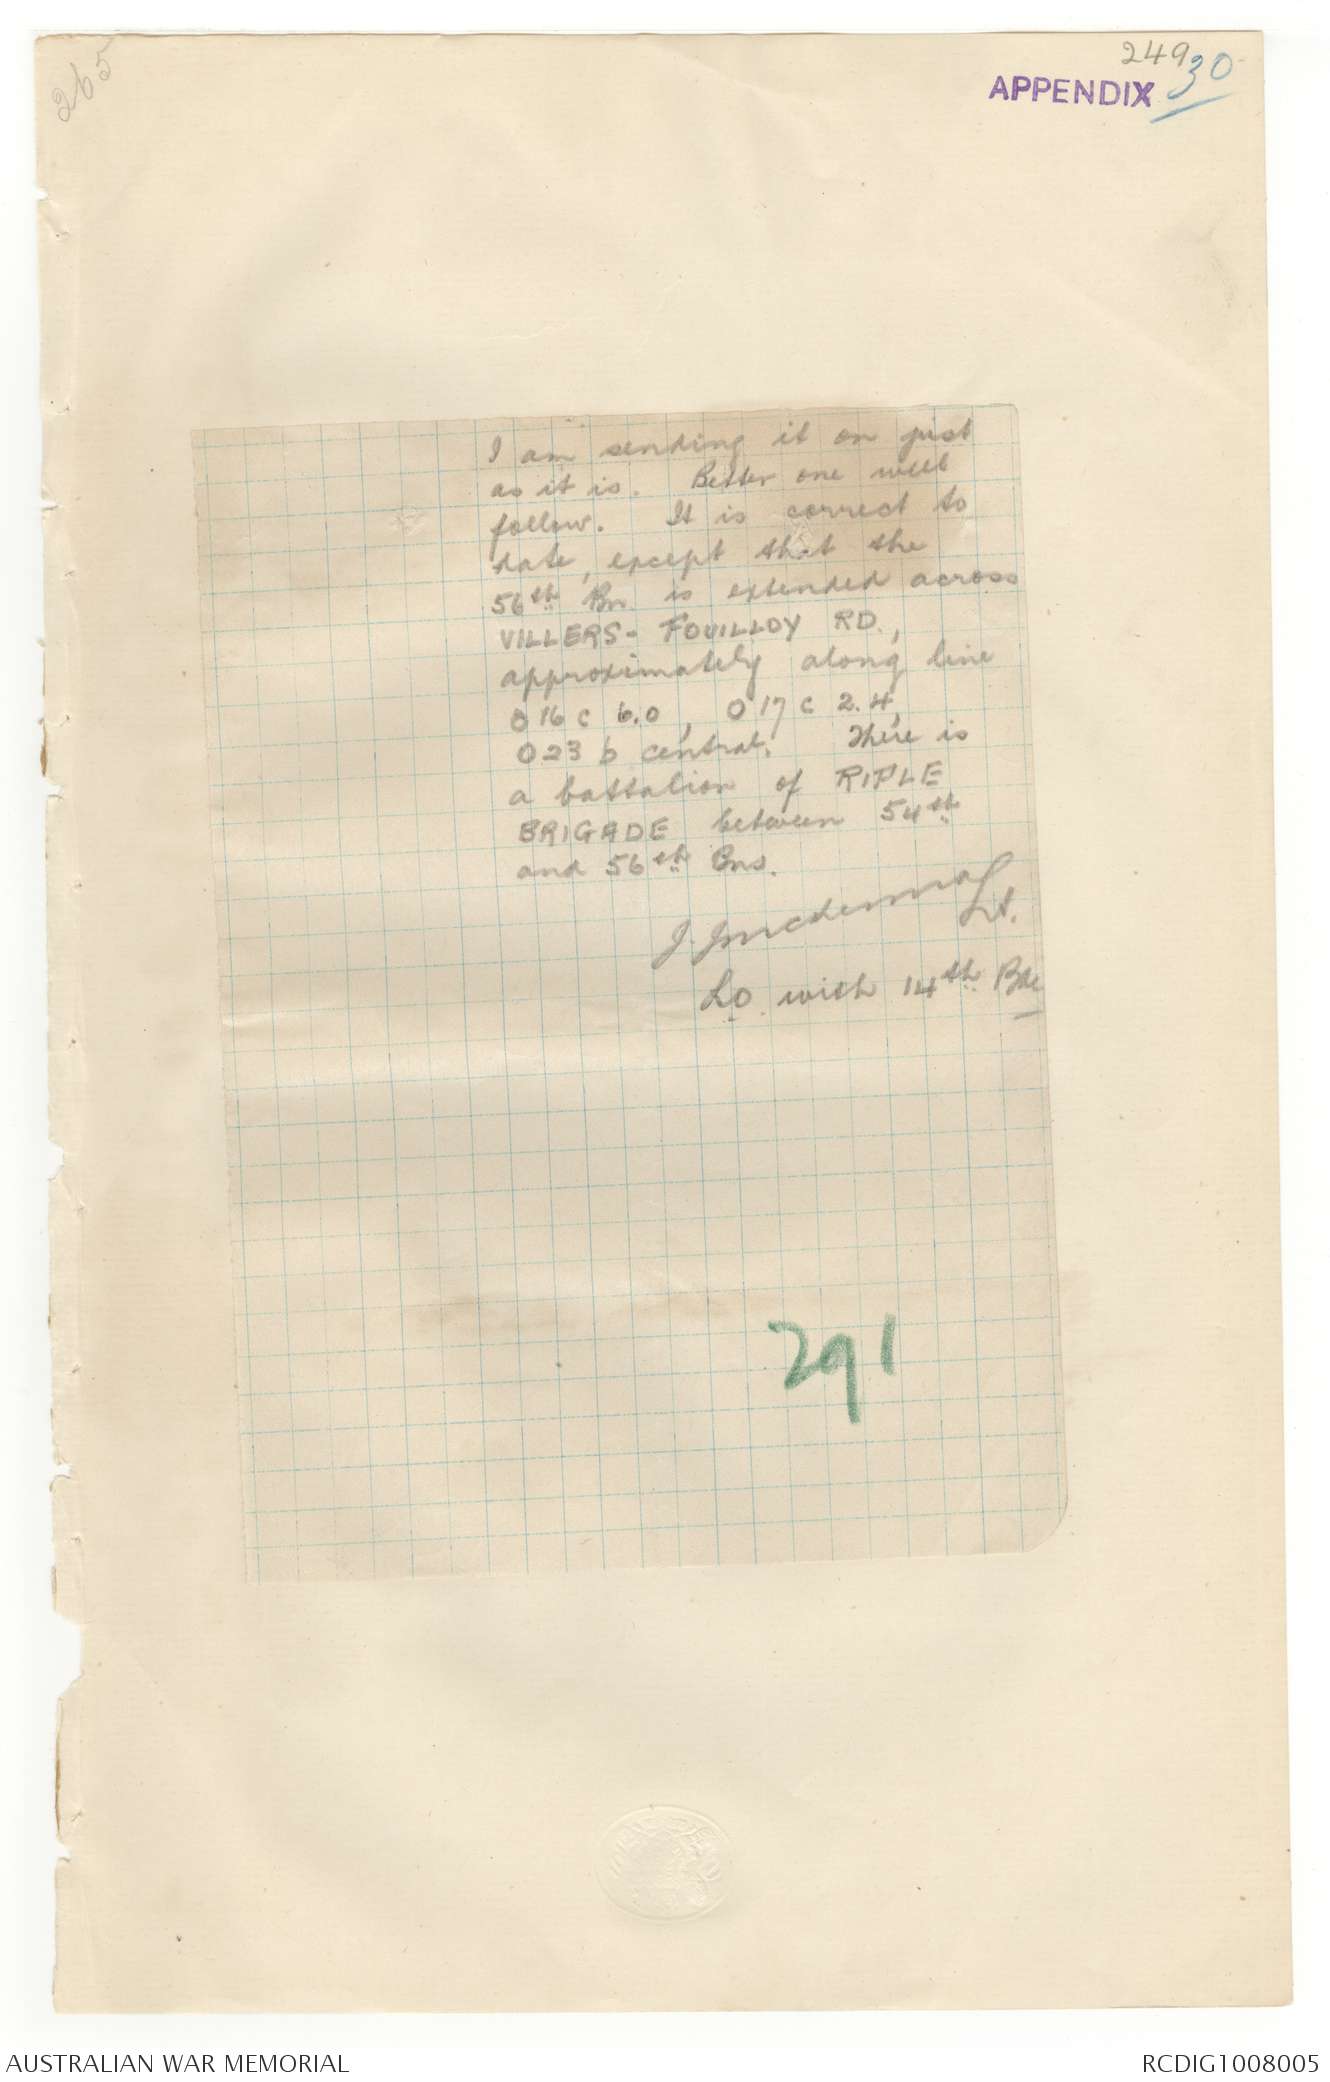 265
249
APPENDIX 30
I am sending it on just
as it is. Better one will
follow. It is correct to
date, except that the
56th Bn. is extended across
VILLERS-FOUILLOY RD.,
approximately along line
O 16 c 6.0, O 17 c 2.4,
O 23 b central. There is
a battalion of RIFLE
BRIGADE between 54th
and 56th Bns.
Lt.
L.O. with 14th Bde
291
AUSTRALIAN WAR MEMORIAL
RCDIG1008005